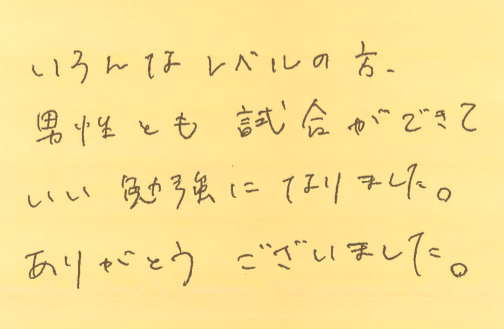 いろんなレベルの方、
男性とも 試合ができて
いい 勉強に なりました。
ありがとう ございました。